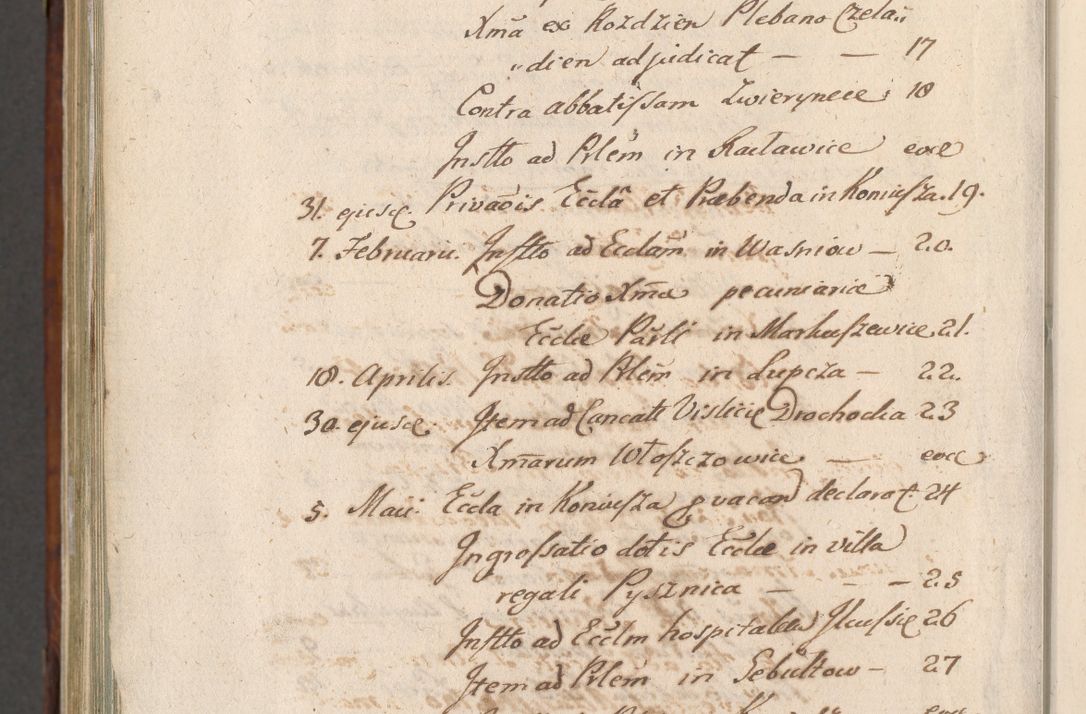 Xma ex Rozdzien Plebano Czela„
„dien adjudicat — — 17
Contra abbatissam Zwierynece 18
Instto ad Prlem in Racławice eod
31. ejusd. Privaois Eccla et Præbenda in Koniusza. 19.
7. Februarii. Instto ad Ecclam in Wasniow — 20.
Donatio Xma pecuniariæ
Ecclæ Parli in Markuszewice 21.
18. Aprilis. Instto ad Prlem in Łupcza — 22.
30. ejusd. Item ad Cancatt Vislicie Drochocka 23
Xmarum Włoszczowice — eod
5. Maii. Eccla in Koniusza g vacan declarat. 24
Ingrossatio dotis Ecclæ in villa
regali Pysznica — — — 25
Instto ad Ecclm hospitalem Ilcussie 26
Item ad Prlem in Sebułtow — 27